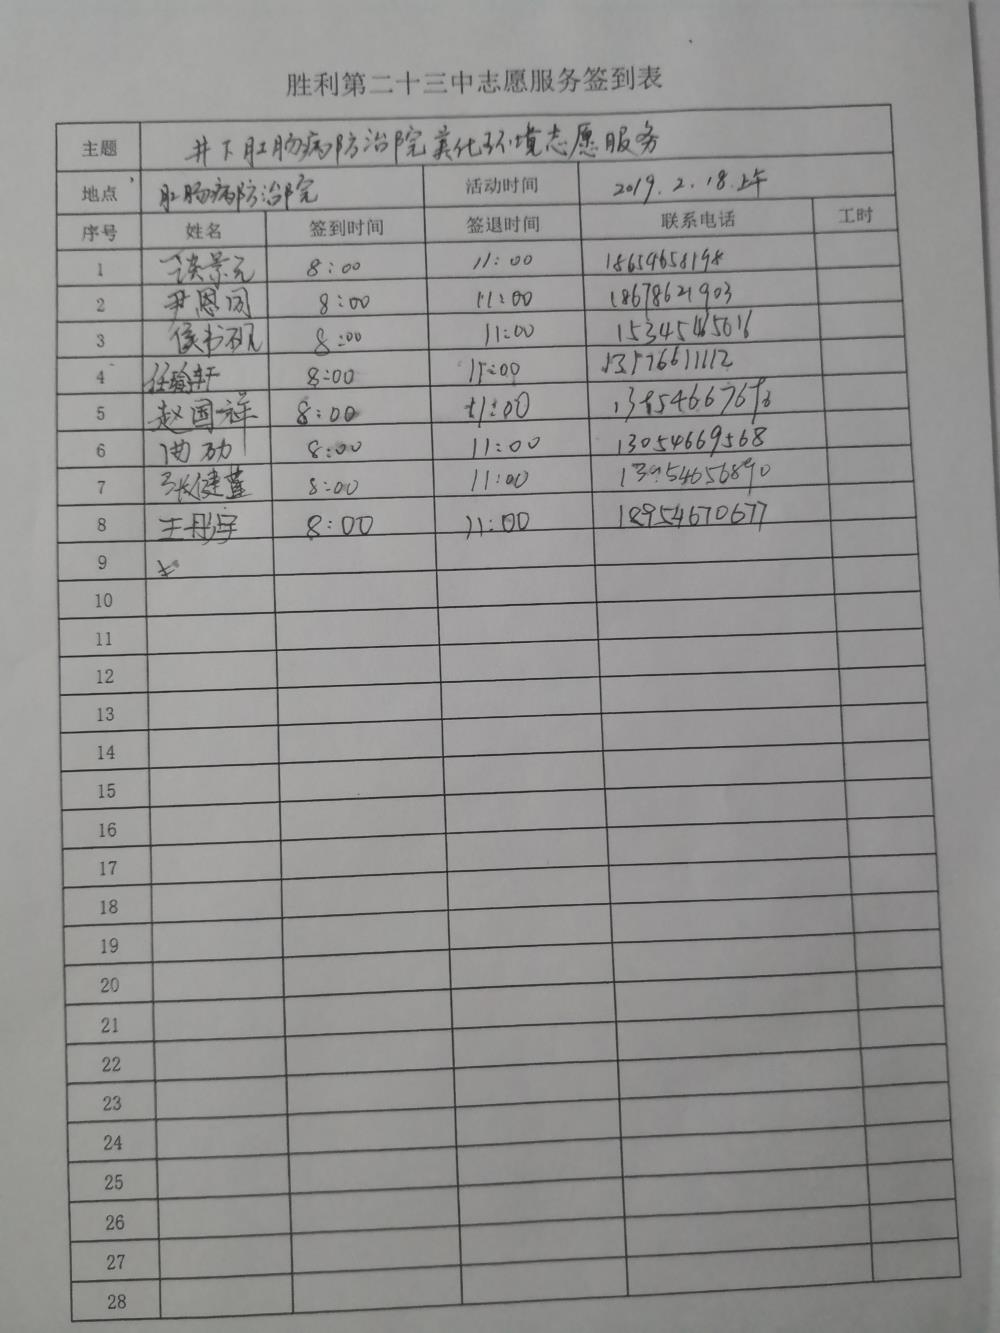 胜利第二十三中志愿服务签到表
主题 井下肛肠病防治院美化环境志愿服务
地点 肛肠病防治院 活动时间 2019.2.18.上午
序号 姓名 签到时间 签退时间 联系电话 工时
1 谈景元 8:00 11:00 18654658198
2 尹恩闵 8:00 11:00 18678621903
3 侯书砚 8:00 11:00 15345465616
4 任翰轩 8:00 11:00 13176611112
5 赵国祥 8:00 11:00
6 曲劢 8:00 11:00 13054669568
7 张健蓝 8:00 11:00 13954656890
8 王丹宇 8:00 11:00 18954670677
9
10
11
12
13
14
15
16
17
18
19
20
21
22
23
24
25
26
27
28